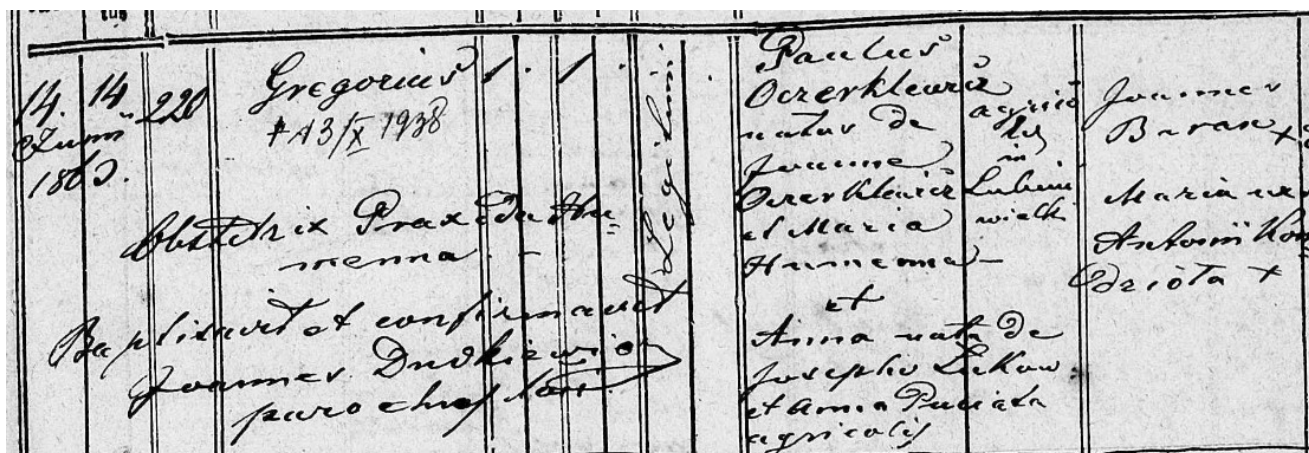 14. 14 220
Junii
1863.
Gregorius 1. 1.
+ 13/X 1938
Obstetrix Praxeda Hu=
menna. -
Baptisavit et confirmavit
Joannes Dudkiewicz
parochus loci
Legitimi
Paulus
Oczerklewicz
natus de
Joanne
Oczerklewicz
et Maria
Humenna -
et
Anna nata de
Josepho Lukow
et Anna Puciata
agricolis
agrico
lis
in
Lubini
wielki
Joannes
Baran +
Maria ux
Antonii Kon
Odziola +